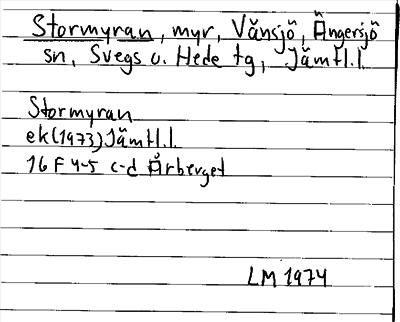 Stormyran, myr, Vänsjö, Ängersjö
sn, Svegs o. Hede tg, Jämtl.l.
Stormyran
ek(1973)Jämtl.l.
16 F 4-5 c-d Årberget
LM 1974